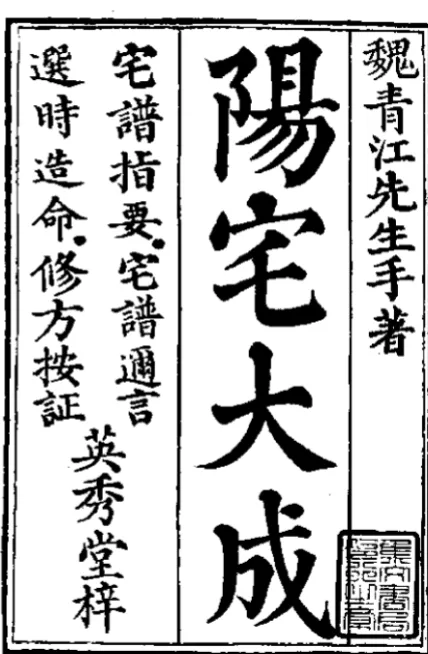 魏青江先生手著
陽宅大成
宅譜指要宅譜邇言
選時造命修方按証
英秀堂梓